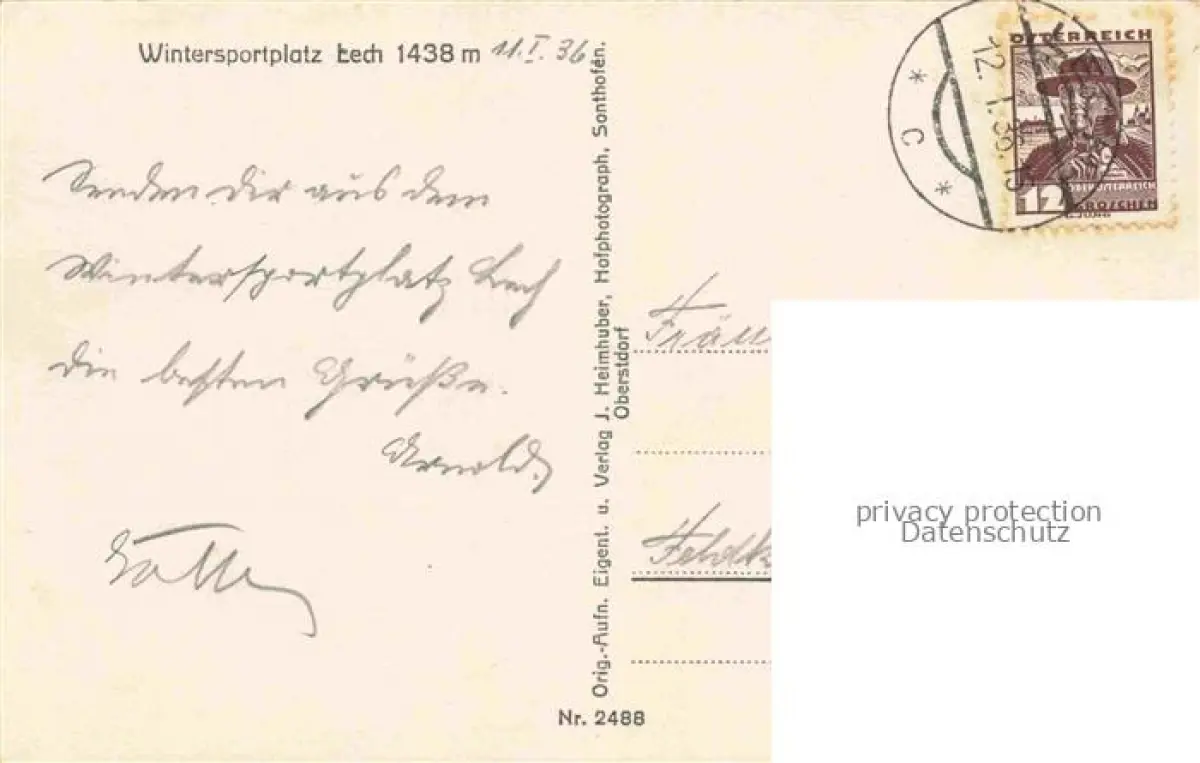 Wintersportplatz Lech 1438 m 11.I.36
Senden dir aus dem
Wintersportplatz Lech
die besten Grüße.
Arnold
Orig.-Aufn. Eigent. u. Verlag J. Heimhuber, Hofphotograph, Sonthofen.
Oberstdorf
Nr. 2488
* C *
12. I. 36. 15
ÖSTERREICH
12
OBERÖSTERREICH
GROSCHEN
Fräu
Feldk
privacy protection
Datenschutz